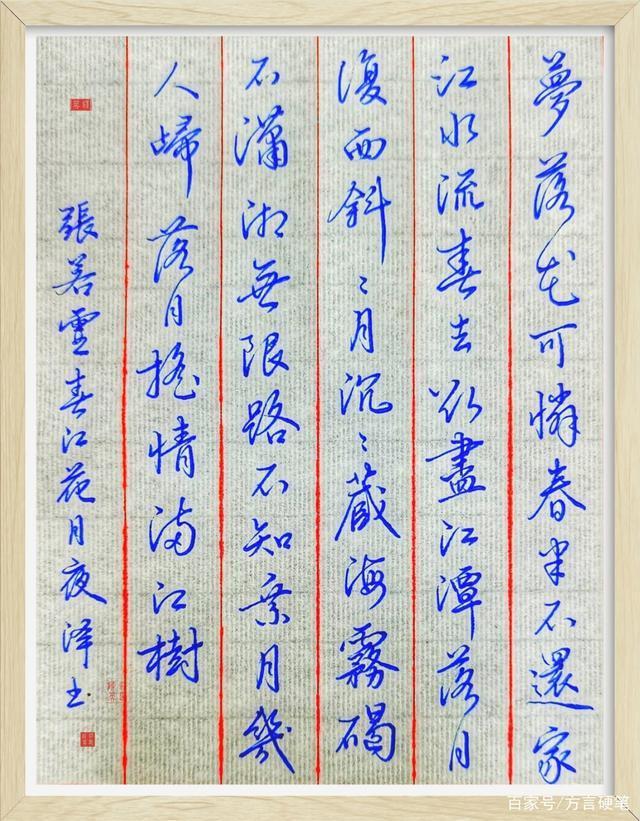 夢落花可憐春半不還家
江水流春去欲盡江潭落月
復西斜〻月沉〻藏海霧碣
石瀟湘無限路不知乘月幾
人歸落月搖情滿江樹
張若虛春江花月夜澤土
百家号/方言硬笔